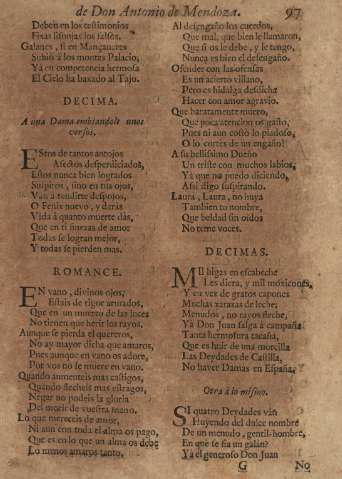 de Don Antonio de Mendoza. 97
Deben en los testimonios
Fixas lisonjas los falsos,
Galanes, si en Mançanares
Subis à los montes Palacio,
Yà en competencia hermosa
El Cielo ha baxado al Tajo.
DECIMA.
A una Dama embiandole unos
versos.
ESsos de tantos antojos
Afectos desperdiciados,
Estos nunca bien logrados
Suspiros, sino en tus ojos,
Van à rendirte despojos,
O Fenix nuevo, y darás
Vida à quanto muerte dàs,
Que en ti fineza de amor
Todas se logran mejor,
Y todas se pierden mas.
ROMANCE.
EN vano, divinos ojos,
Estais de rigor armados,
Que en un muerto de las luces
No tienen que herir los rayos.
Aunque se pierda el quereros,
No ay mayor dicha que amaros,
Pues aunque en vano os adore,
Por vos no se muere en vano.
Quando aumenteis mas castigos,
Quando flecheis mas estragos,
Negar no podeis la gloria
Del morir de vuestra mano.
Lo que mereceis de amor,
Ni aun con toda el alma os pago,
Que es en lo que un alma os debe
Lo menos amaros tanto,
Al desengaño los cuerdos,
Que mal, que bien le llamaron,
Que si os le debe, y le tengo,
Nunca es bien el desengaño.
Ofender con las ofensas
Es un acierto villano,
Pero es hidalga desdicha
Hacer con amor agravio.
Que baratamente muero,
Que poca atencion os gasto,
Pues ni aun costò lo piadoso,
O lo cortès de un engaño!
A su bellissimo Dueño
Un triste con muchos labios,
Yà que no puedo diciendo,
Assi digo suspirando.
Laura, Laura, no huya
Tambien tu nombre,
Que beldad sin oidos
No teme voces.
DECIMAS.
MIl higas en escabeche
Les diera, y mil moxicones,
Y en vez de gratos capones
Muchas xaraxas de leche;
Menudos, no rayos fleche,
Yà Don Juan salga à campaña
Tanta hermosura tacaña,
Que es hair de una morcilla
Las Deydades de Castilla,
No haver Damas en España.
Otra à lo mismo.
SI quatro Deydades vàn
Huyendo del dulce nombre
De un menudo, gentil-hombre,
En que se fia un galàn?
Yà el generoso Don Juan
G No